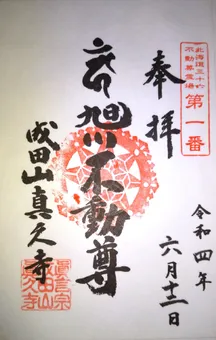 北海道三十六
不動尊霊場
第一番
奉拝
令和四年
六月十二日
旭川不動尊
成田山真久寺
眞言宗
成田山
真久寺